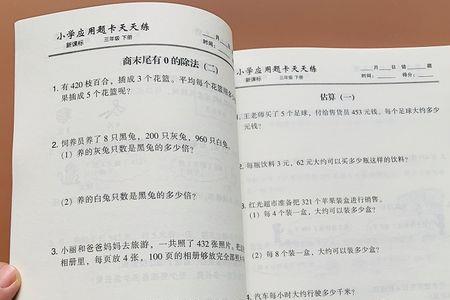 小学应用题卡天天练
新课标 三年级 下册
月
时间:
商末尾有0的除法(二)
1. 有420枝百合,插成3个花篮。平均每个花篮
果插成5个花篮呢?
2. 饲养员养了8只黑兔,200只灰兔,960只白兔。
(1)养的灰兔只数是黑兔的多少倍?
(2)养的白兔只数是黑兔的多少倍?
3. 小丽和爸爸妈妈去旅游,一共照了432张照片。把
相册里,每页放4张,100页的相册够放完全部照
小学应用题卡天天练
新课标 三年级 下册
月 日 错 题
时间: 得分:
估算(一)
王老师买了5个足球,付给售货员453元钱。每个足球大约多少
元钱?
每瓶饮料3元,62元大约可以买多少瓶这样的饮料?
红光超市准备把321个苹果装盒进行销售。
(1)每4个装一盒,大约可以装多少盒?
(2)每8个装一盒,大约可以装多少盒?
汽车每小时大约行驶多少千米?